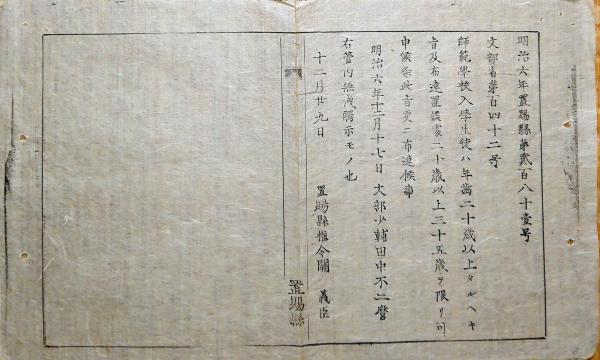 明治六年置賜縣第貳百八十壹号
文部省第百四十二号
師範學校入學生徒ハ年齒二十歳以上タルヘキ
旨及布達置候處二十歳以上三十五歳ヲ限リ可
申候条此旨更ニ布達候事
明治六年十二月十七日 文部少輔田中不二麿
右管内無洩觸示モノ也
十二月廿九日 置賜縣権令關 義臣
置賜縣